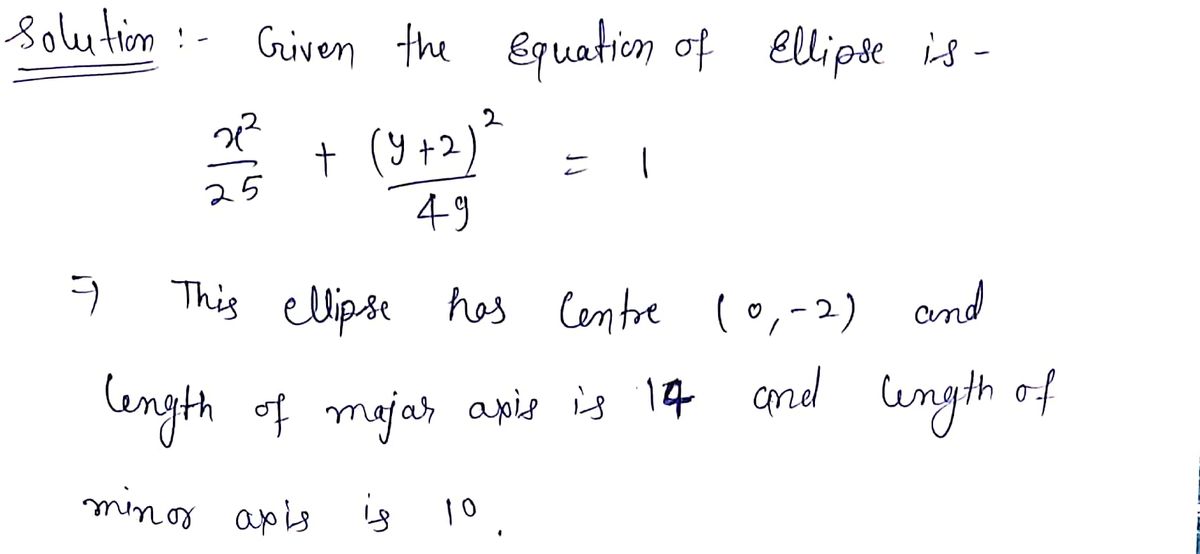 Solution :- Given the Equation of Ellipse is -
x²/25 + (y+2)²/49 = 1
⇒ This ellipse has Centre (0,-2) and
length of major axis is 14 and length of
minor axis is 10.